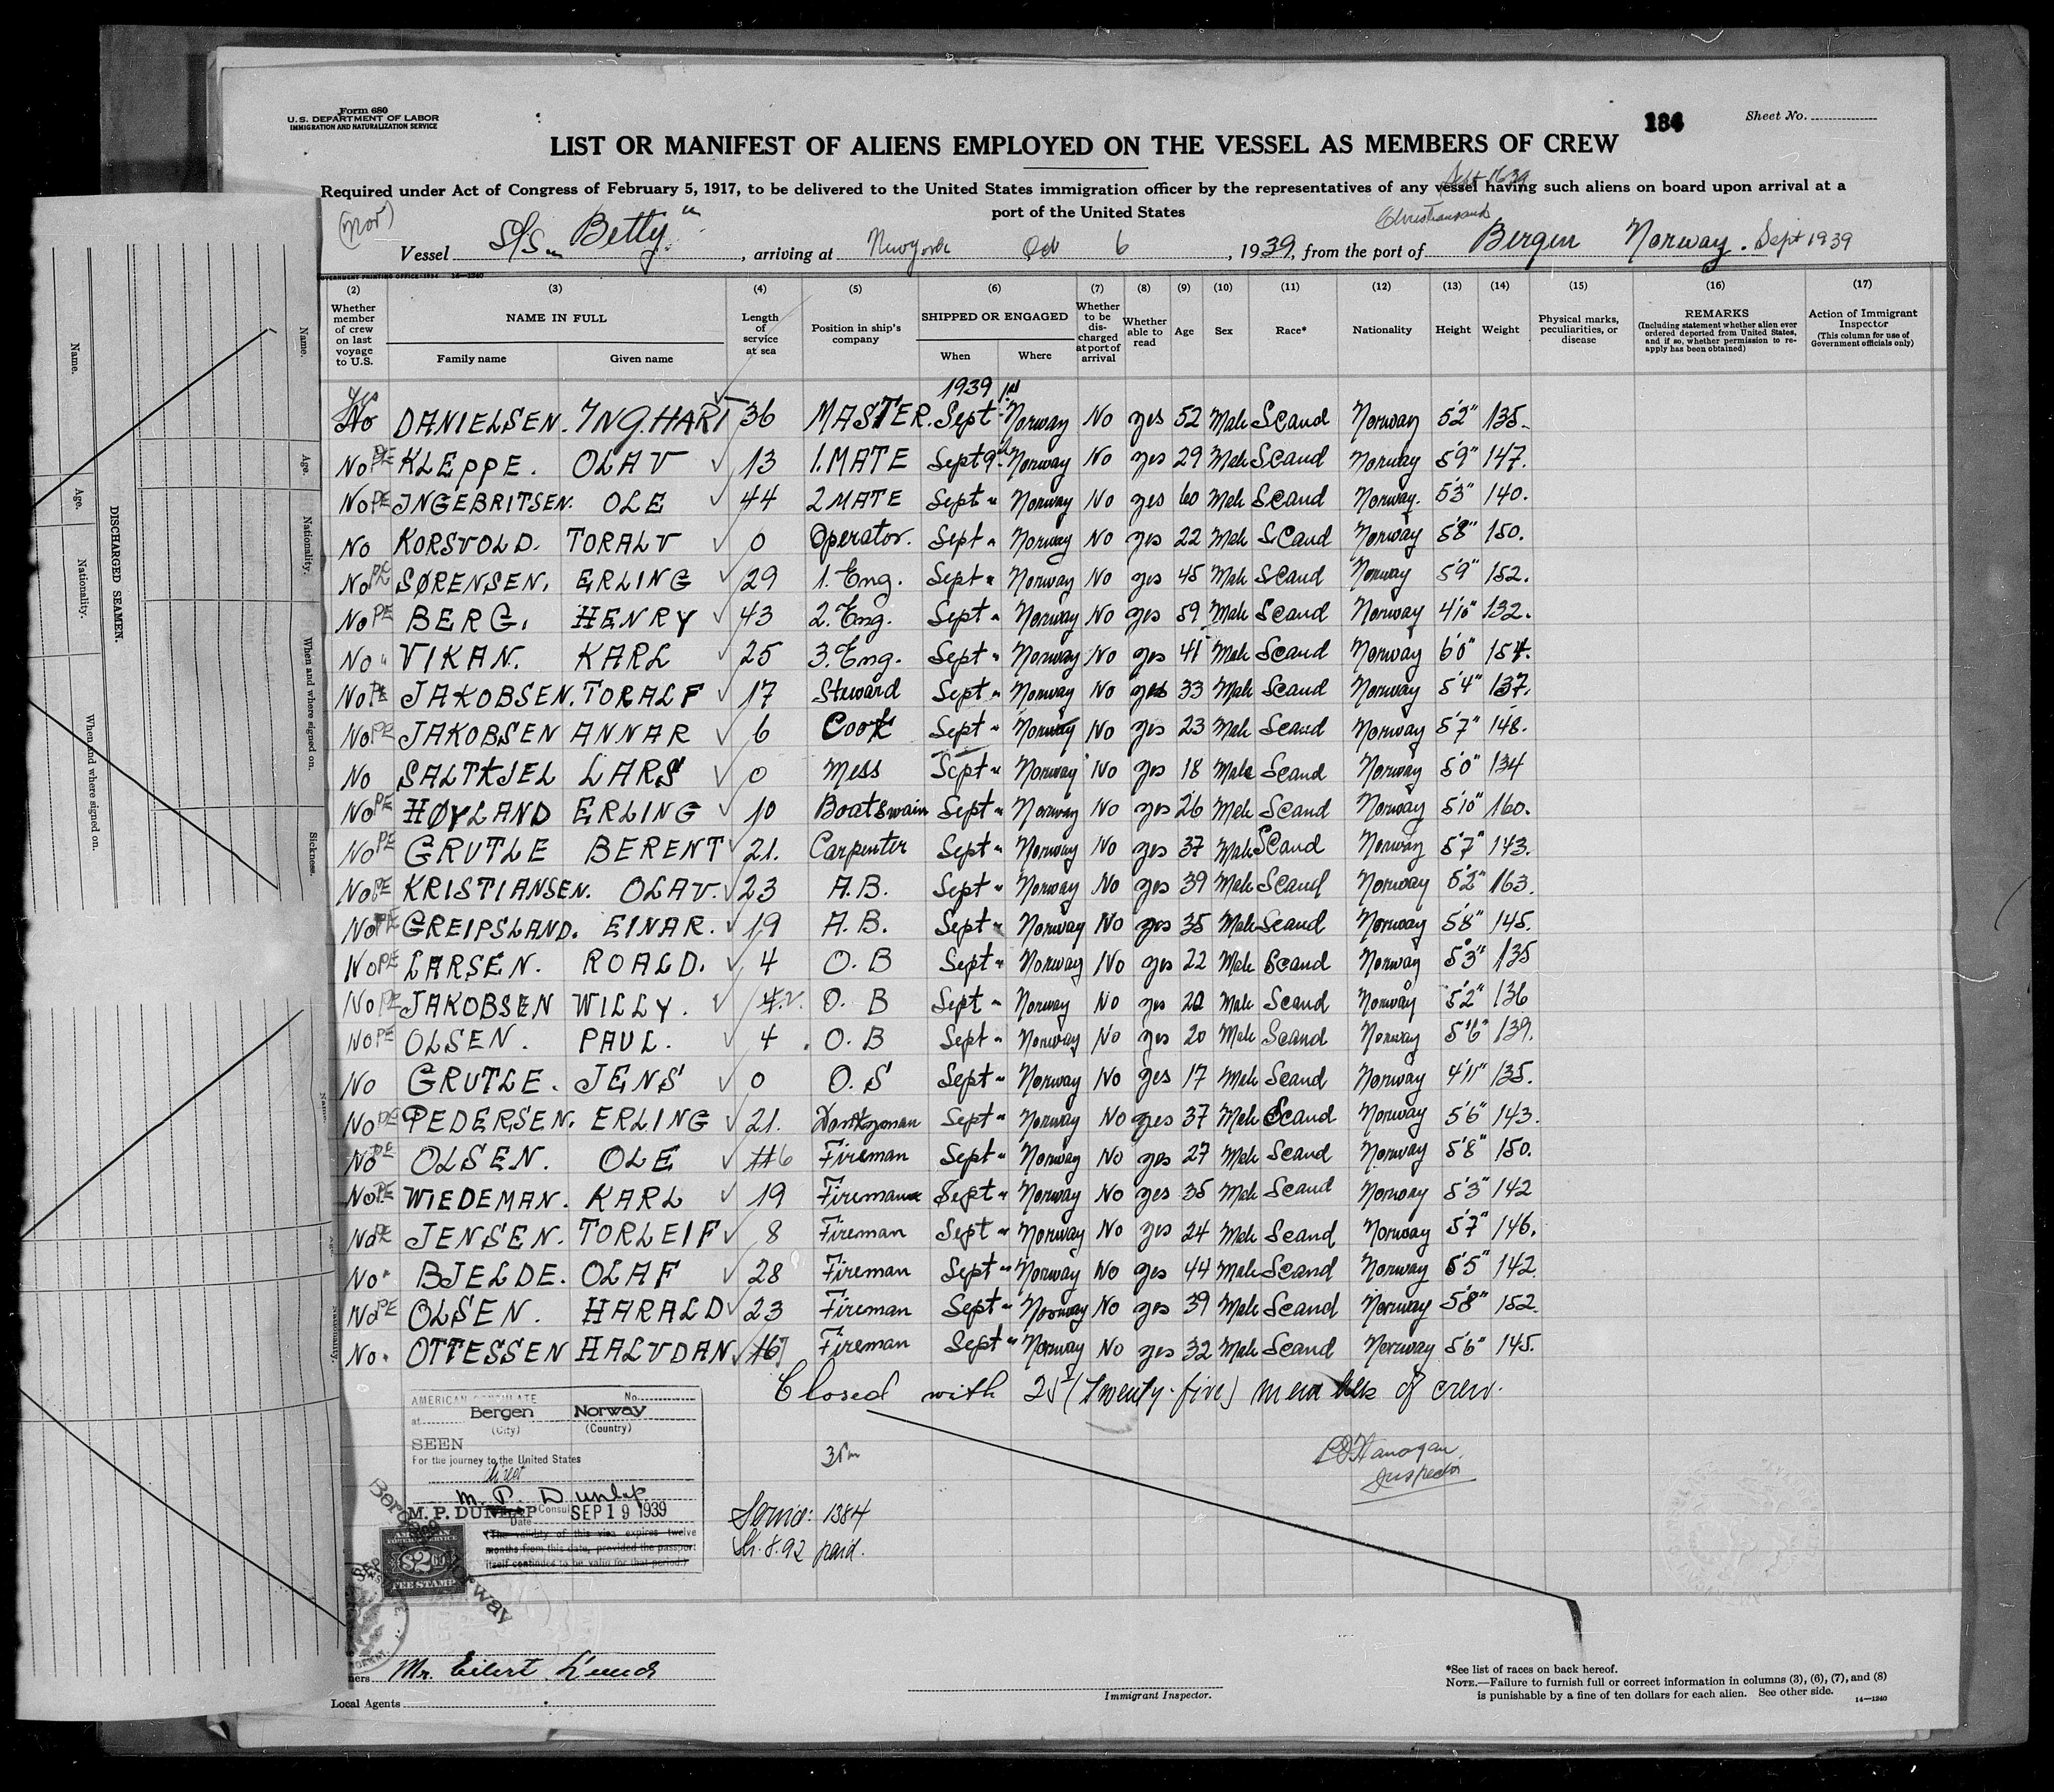 Form 680
U.S. DEPARTMENT OF LABOR
IMMIGRATION AND NATURALIZATION SERVICE
184
Sheet No.
LIST OR MANIFEST OF ALIENS EMPLOYED ON THE VESSEL AS MEMBERS OF CREW
Required under Act of Congress of February 5, 1917, to be delivered to the United States immigration officer by the representatives of any vessel having such aliens on board upon arrival at a
port of the United States
(Nor)
Christiansand
Vessel S/S "Betty", arriving at New york Oct 6, 1939, from the port of Bergen Norway. Sept 1939
(2) (3) (4) (5) (6) (7) (8) (9) (10) (11) (12) (13) (14) (15) (16) (17)
Whether member of crew on last voyage to U.S. NAME IN FULL Family name Given name Length of service at sea Position in ship's company SHIPPED OR ENGAGED When Where Whether to be discharged at port of arrival Whether able to read Age Sex Race* Nationality Height Weight Physical marks, peculiarities, or disease REMARKS (Including statement whether alien ever ordered deported from United States, and if so, whether permission to reapply has been obtained) Action of Immigrant Inspector (This column for use of Government officials only)
1939
Yes
No DANIELSEN. INGHART 36 MASTER. Sept Norway No yes 52 Male Scand Norway 5'2" 135.
No PE KLEPPE. OLAV 13 1. MATE Sept 9 Norway No yes 29 Male Scand Norway 5'9" 147.
No PE INGEBRITSEN. OLE 44 2 MATE Sept " Norway No yes 60 Male Scand Norway. 5'3" 140.
No KORSVOLD. TORALV 0 Operator. Sept " Norway No yes 22 Male Scand Norway 5'8" 150.
No PE SØRENSEN. ERLING 29 1. Eng. Sept " Norway No yes 45 Male Scand Norway 5'9" 152.
No PE BERG. HENRY 43 2. Eng. Sept " Norway No yes 59 Male Scand Norway 4'10" 132.
No " VIKAN. KARL 25 3. Eng. Sept " Norway No yes 41 Male Scand Norway 6'0" 154.
No PE JAKOBSEN. TORALF 17 Steward Sept " Norway No yes 33 Male Scand Norway 5'4" 137.
No PE JAKOBSEN ANNAR 6 Cook Sept " Norway No yes 23 Male Scand Norway 5'7" 148.
No SALTKJEL LARS 0 Mess Sept " Norway No yes 18 Male Scand Norway 5'0" 134
No PE HØYLAND ERLING 10 Boatswain Sept " Norway No yes 26 Male Scand Norway 5'10" 160.
No PE GRUTLE BERENT 21. Carpenter Sept " Norway No yes 37 Male Scand Norway 5'7" 143.
No PE KRISTIANSEN. OLAV. 23 A.B. Sept " Norway No yes 39 Male Scand Norway 5'2" 163.
No PE GREIPSLAND. EINAR. 19 A.B. Sept " Norway No yes 35 Male Scand Norway 5'8" 145.
No PE LARSEN. ROALD. 4 O.B Sept " Norway No yes 22 Male Scand Norway 5'3" 135
No PE JAKOBSEN WILLY. O.B Sept " Norway No yes Male Scand Norway 5'2" 136
No PE OLSEN. PAUL. 4 O.B Sept " Norway No yes 20 Male Scand Norway 5'6" 139.
No GRUTLE. JENS 0 O.S Sept " Norway No yes 17 Male Scand Norway 4'11" 135.
No PE PEDERSEN. ERLING 21. Donkeyman Sept " Norway No yes 37 Male Scand Norway 5'6" 143.
No PE OLSEN. OLE 6 Fireman Sept " Norway No yes 27 Male Scand Norway 5'8" 150.
No PE WIEDEMAN. KARL 19 Fireman Sept " Norway No yes 35 Male Scand Norway 5'3" 142
No PE JENSEN. TORLEIF 8 Fireman Sept " Norway No yes 24 Male Scand Norway 5'7" 146.
No " BJELDE. OLAF 28 Fireman Sept " Norway No yes 44 Male Scand Norway 5'5" 142.
No PE OLSEN. HARALD 23 Fireman Sept " Norway No yes 39 Male Scand Norway 5'8" 152.
No " OTTESSEN HALVDAN Fireman Sept " Norway No yes 32 Male Scand Norway 5'6" 145.
Closed with 25 (twenty-five) members of crew.
AMERICAN CONSULATE No.
at Bergen Norway
(City) (Country)
SEEN
For the journey to the United States
M. P. Dunlap
M. P. DUNLAP Consul SEP 19 1939
Date
(The validity of this visa expires twelve
months from this date, provided the passport
itself continues to be valid for that period.)
Inspector
1384
8.92 paid.
$2.00
FEE STAMP
Bergen Norway
Mr. Eilert Lund
Local Agents
Immigrant Inspector.
*See list of races on back hereof.
NOTE.—Failure to furnish full or correct information in columns (3), (6), (7), and (8)
is punishable by a fine of ten dollars for each alien. See other side.
14—1240
DISCHARGED SEAMEN.
Name. Age. Nationality. When and where signed on.
Name. Age. Nationality. When and where signed on. Sickness.